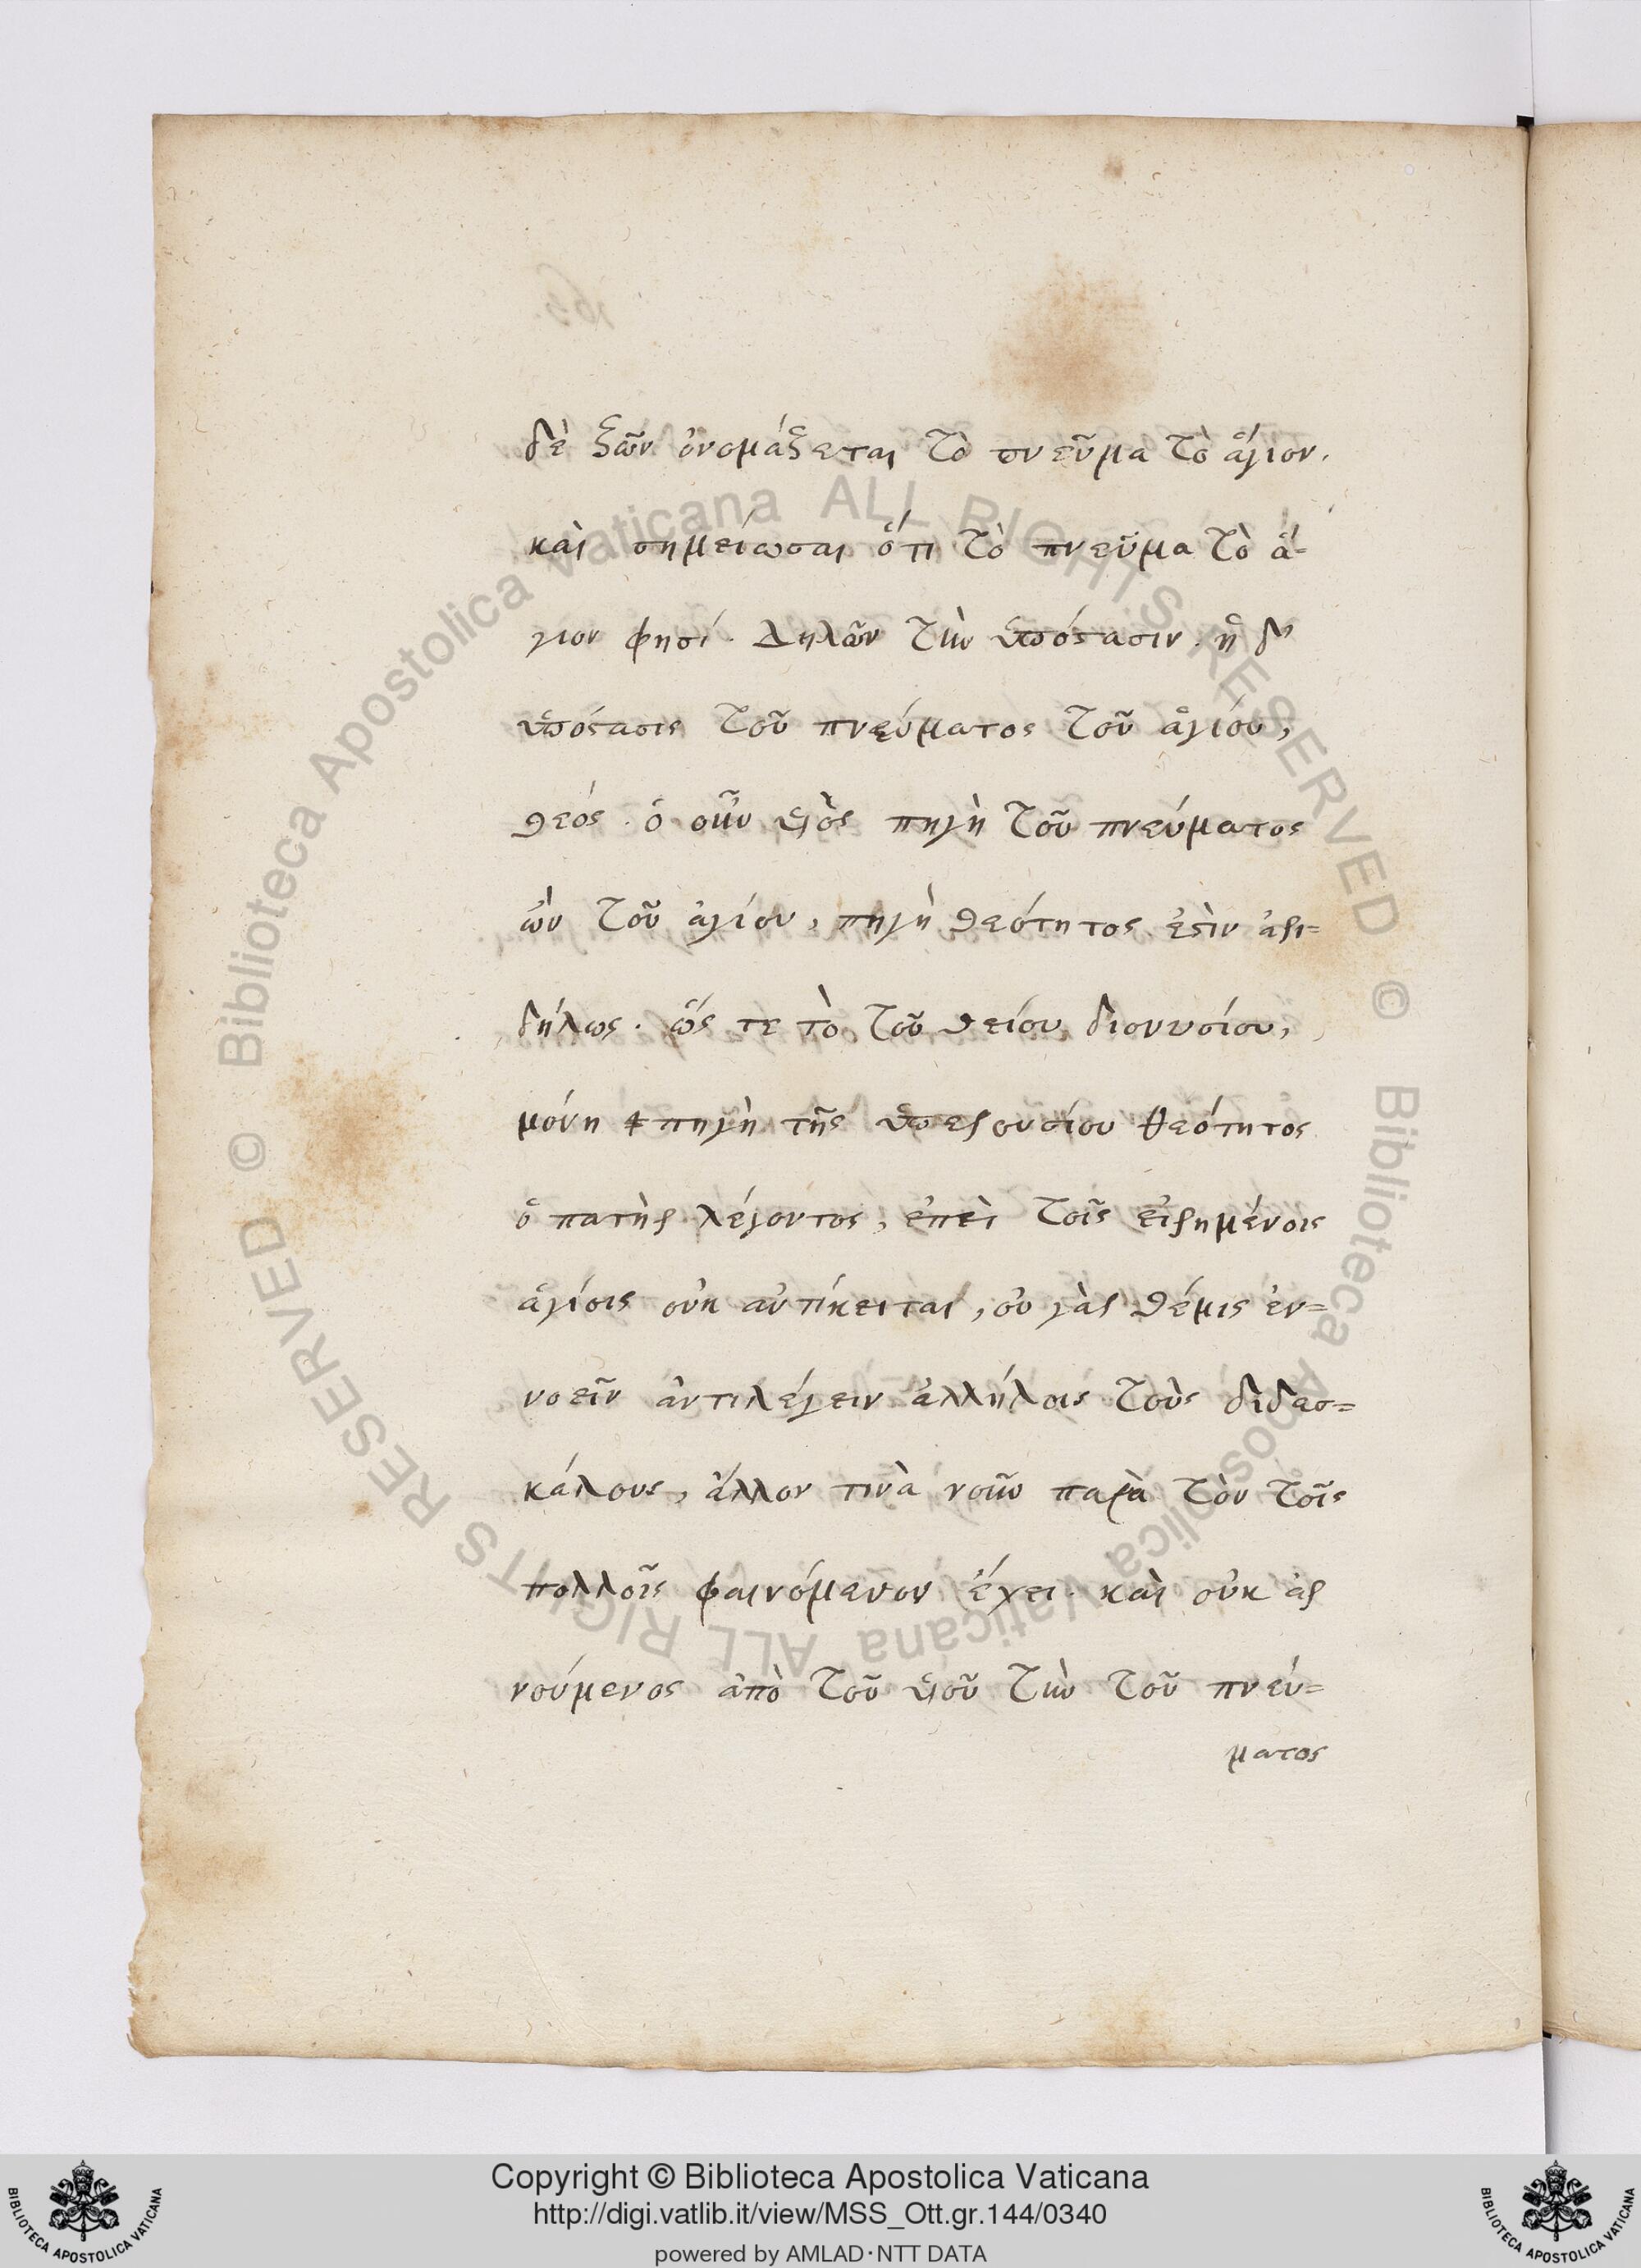 δὲ ζῶν ὀνομάζεται τὸ πνεῦμα τὸ ἅγιον.
καὶ σημείωσαι ὅτι τὸ πνεῦμα τὸ ἅ=
γιον φησί. Δηλῶν τὴν ὑπόστασιν. ἡ δ'
ὑπόστασις τοῦ πνεύματος τοῦ ἁγίου,
θεός. ὁ οὖν υἱὸς πηγὴ τοῦ πνεύματος
ὢν τοῦ ἁγίου, πηγὴ θεότητος ἐστὶν ἀρι=
δήλως. ὥς τε τὸ τοῦ θείου διονυσίου,
μόνη πηγὴ τῆς ὑπερουσίου θεότητος
ὁ πατὴρ λέγοντος, ἐπεὶ τοῖς εἰρημένοις
ἁγίοις οὐκ ἀντίκειται, οὐ γὰρ θέμις ἐν=
νοεῖν ἀντιλέγειν ἀλλήλοις τοὺς διδασ=
κάλους, ἄλλον τινὰ νοῦν παρὰ τὸν τοῖς
πολλοῖς φαινόμενον ἔχει. καὶ οὐκ ἀρ
νούμενος ἀπὸ τοῦ υἱοῦ τὴν τοῦ πνεύ=
ματος
© Biblioteca Apostolica Vaticana ALL RIGHTS RESERVED © Biblioteca Apostolica Vaticana ALL RIGHTS RESERVED
Copyright © Biblioteca Apostolica Vaticana
http://digi.vatlib.it/view/MSS_Ott.gr.144/0340
powered by AMLAD·NTT DATA
BIBLIOTECA APOSTOLICA VATICANA
BIBLIOTECA APOSTOLICA VATICANA